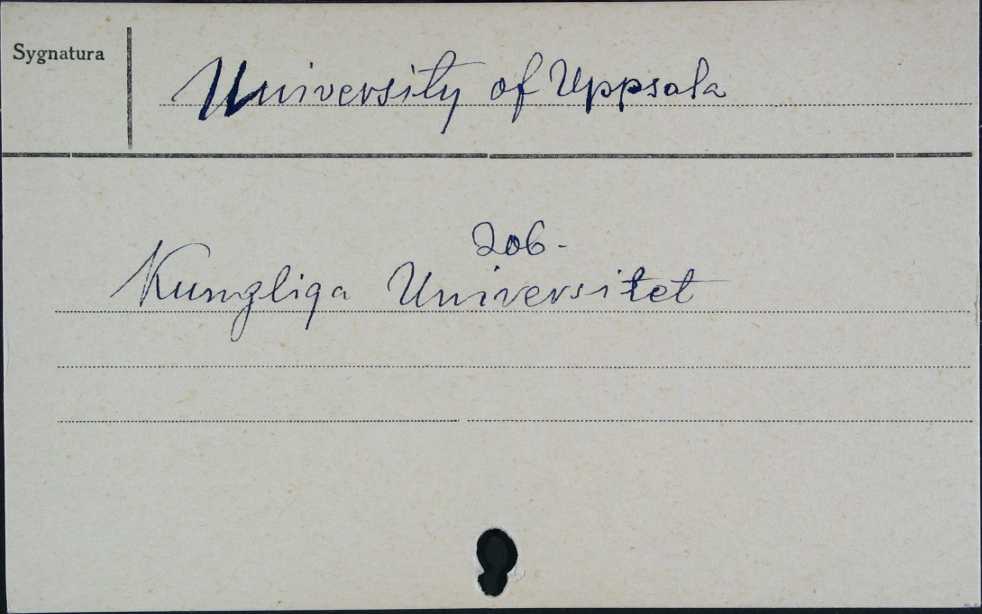 Sygnatura
University of Uppsala
zob-
Kungliga Universitet